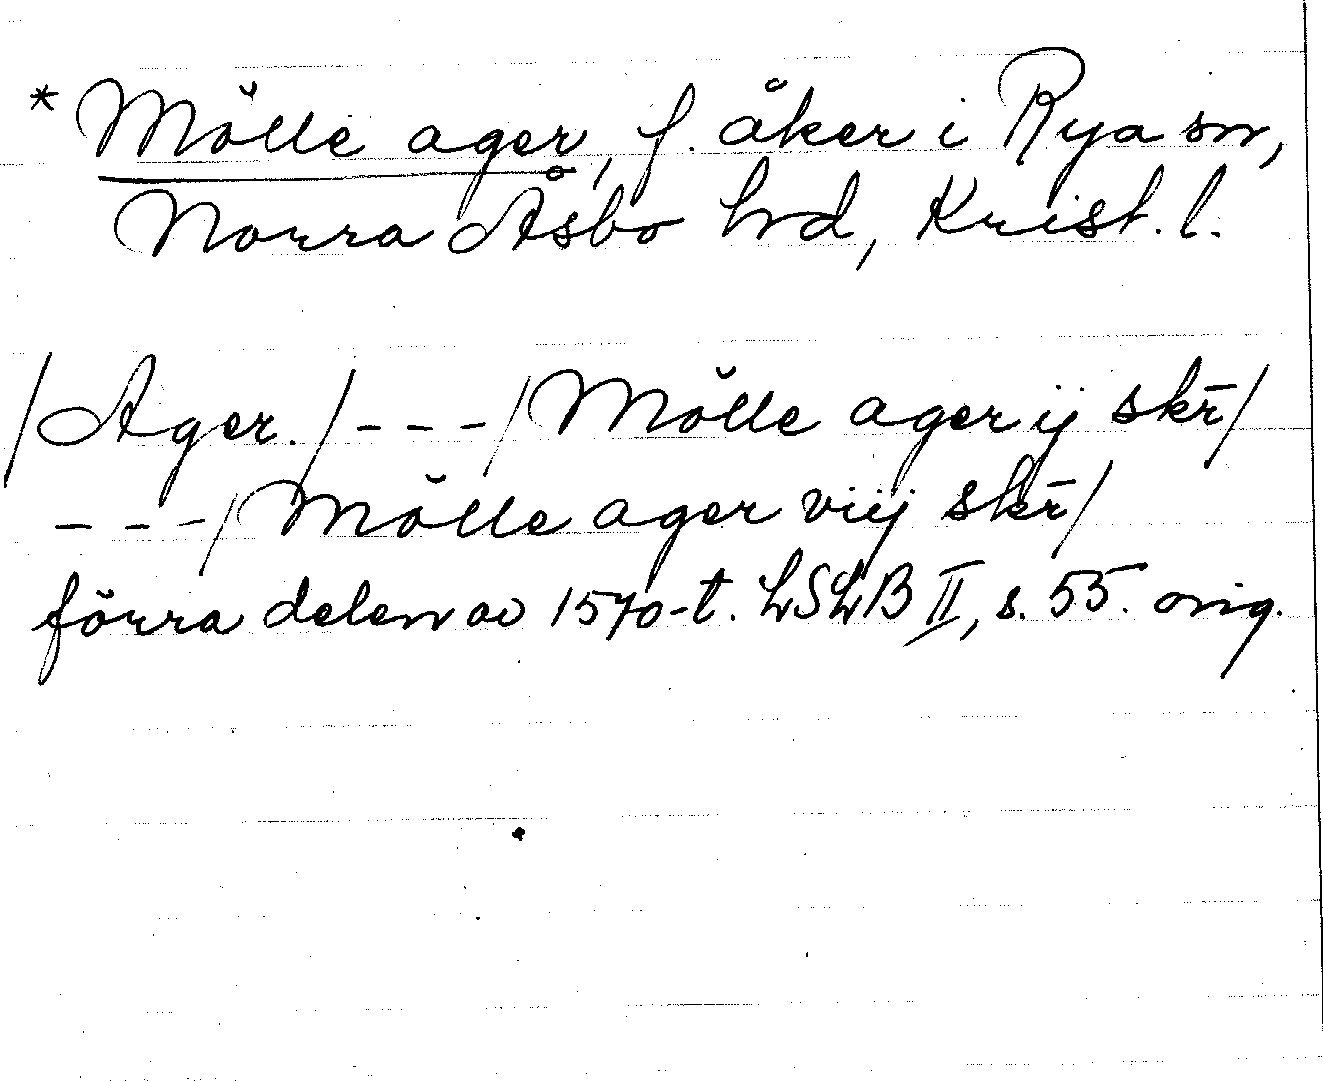 * Mölle ager, f. åker i Rya sn,
Norra Åsbo hd, Krist. l.
/Ager./ - - - /Mölle ager ij skr̄/
- - - /Mölle ager viij skr̄/
förra delen av 1570-t. LSLB II, s. 55. orig.